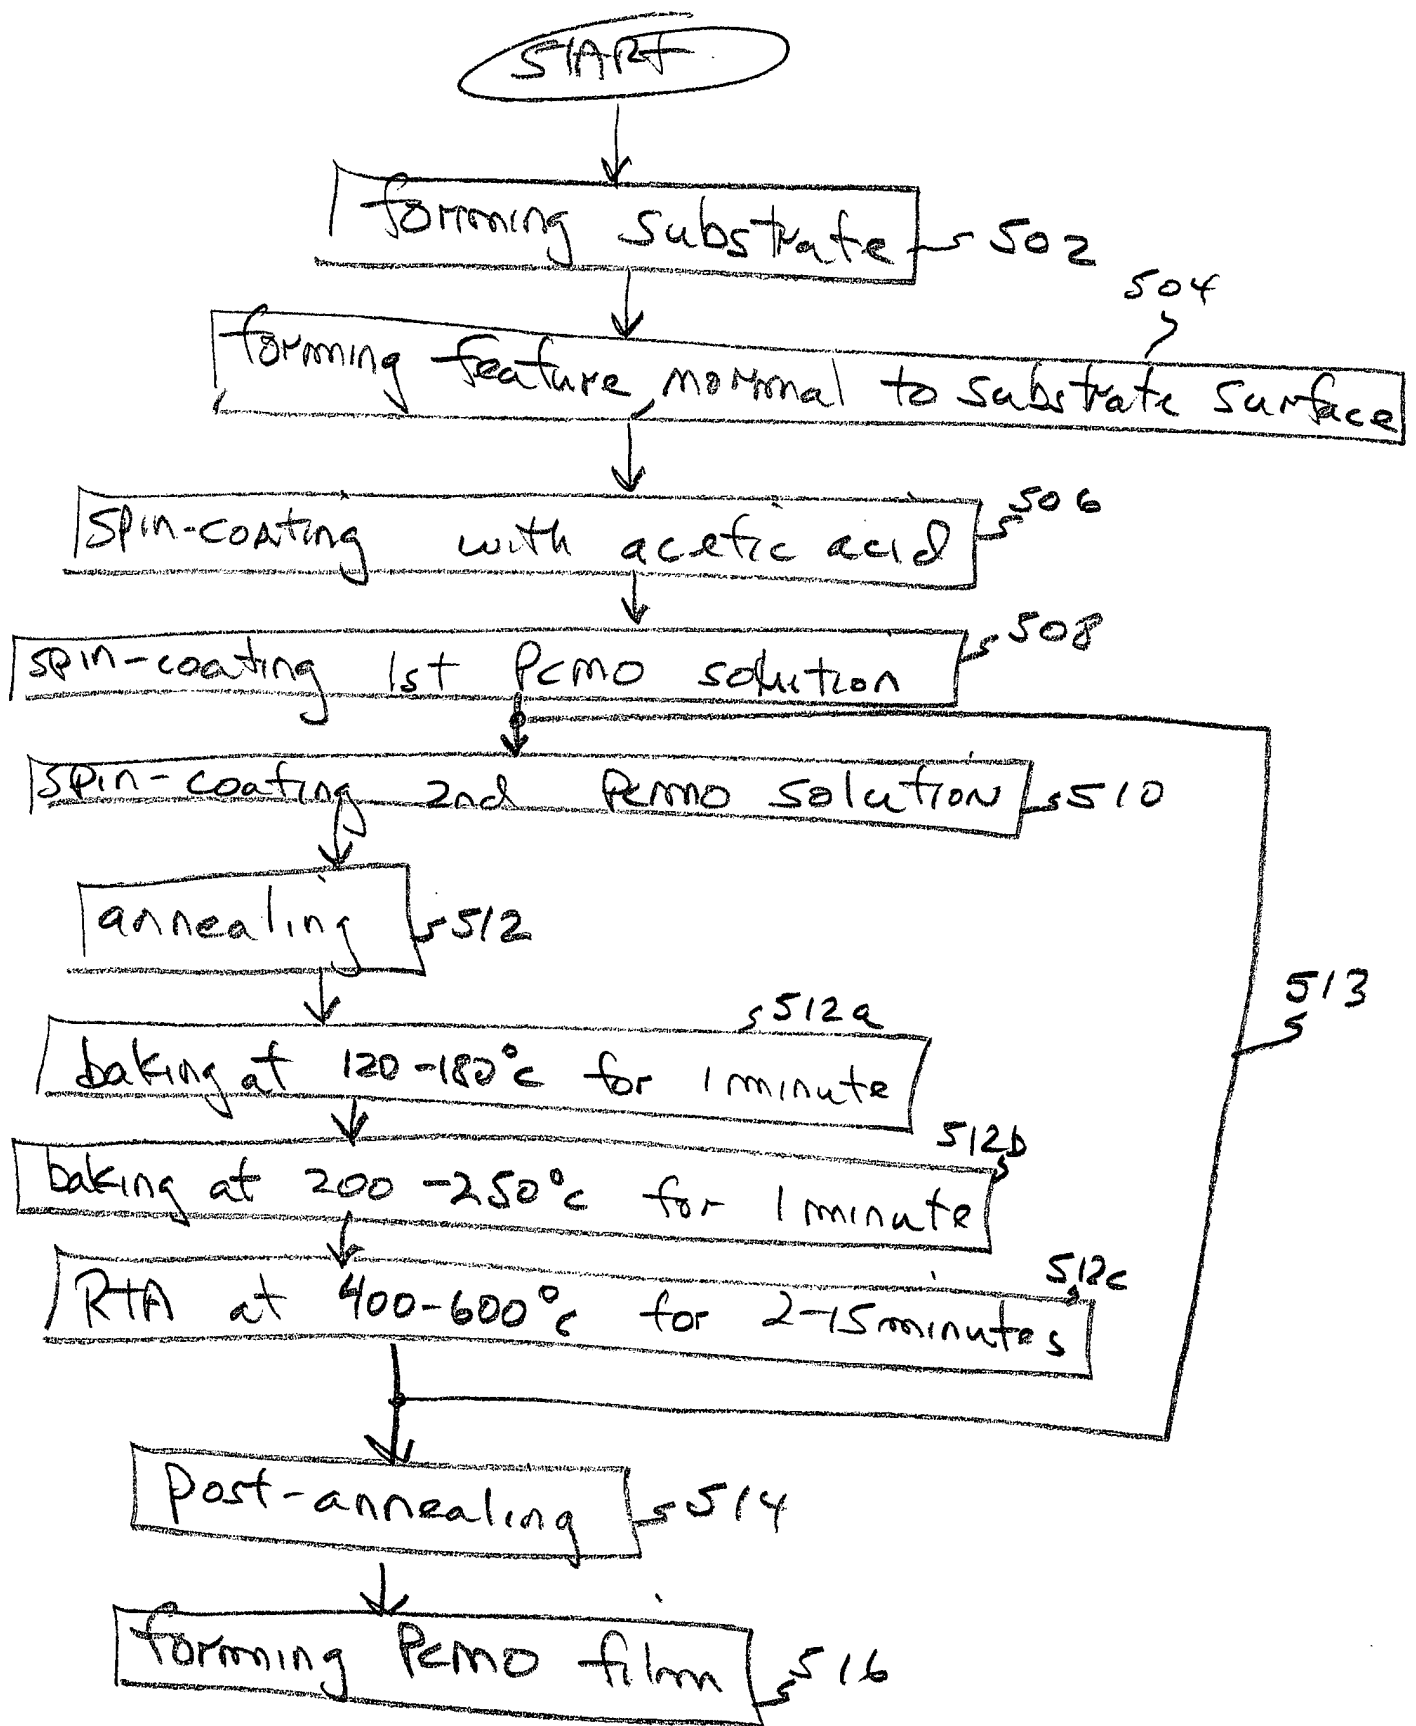 START
forming substrate 502
504
forming feature normal to substrate surface
506
spin-coating with acetic acid
508
spin-coating 1st PCMO solution
spin-coating 2nd PCMO solution 510
annealing 512
513
512a
baking at 120-180°C for 1 minute
512b
baking at 200-250°C for 1 minute
512c
RTA at 400-600°C for 2-15 minutes
post-annealing 514
forming PCMO film 516